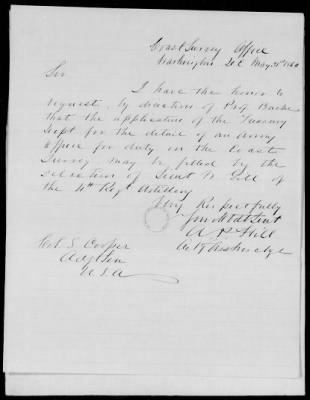 Coast Survey Office
Washington D.C. May 31st 1860
Sir
I have the honor to
request, by direction of Prof Bache
that the application of the Treasury
Dept for the detail of an Army
officer for duty on the Coast
Survey may be filled by the
selection of Lieut Gill of
the 4th Regt Artillery
Very Respectfully
Your Obdt Servt
A P Hill
Col. S. Cooper
Adj Gen
U.S.A